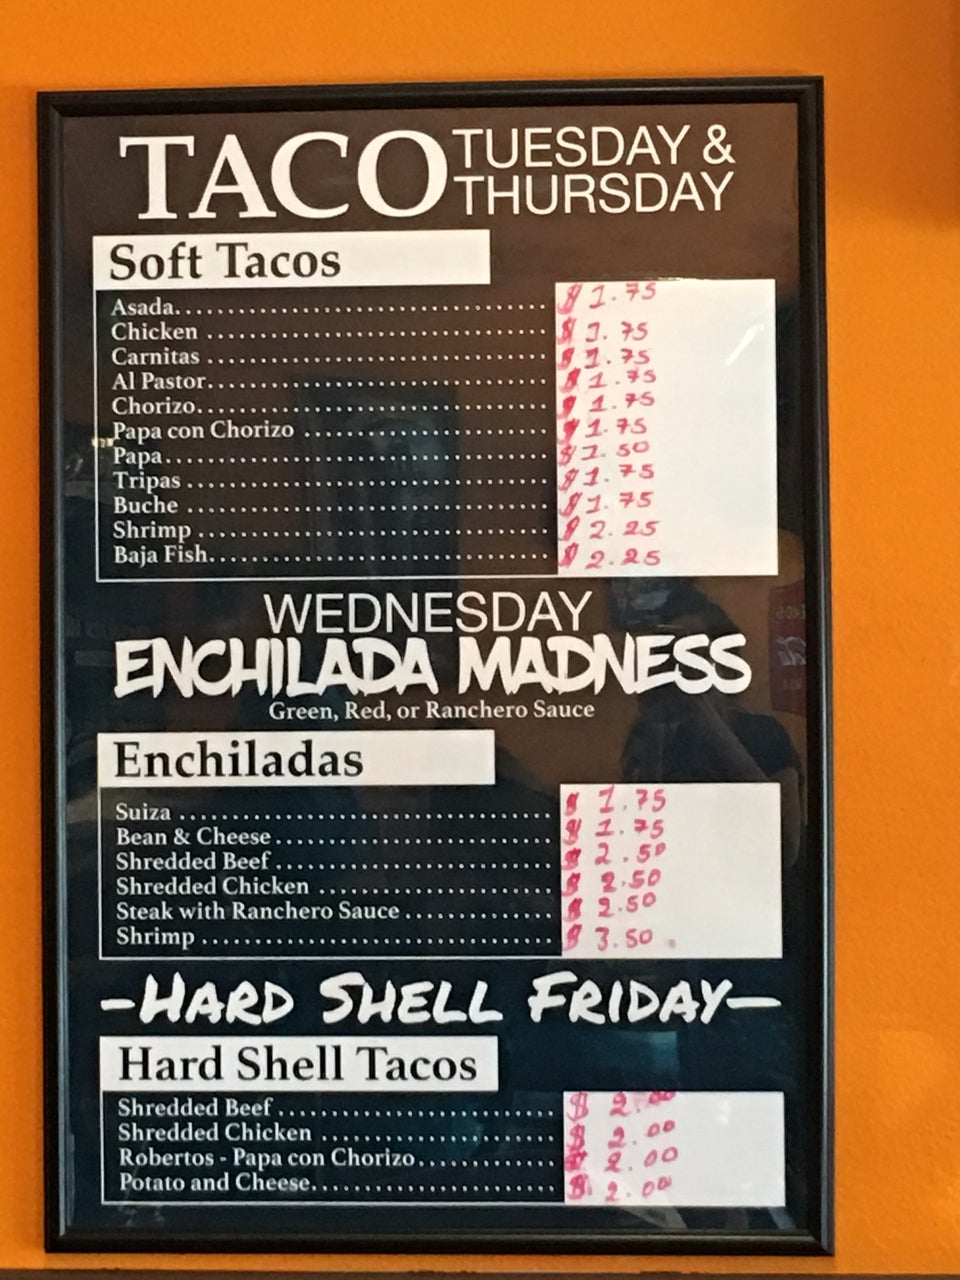 TACO TUESDAY &
THURSDAY
Soft Tacos
Asada $1.75
Chicken $1.75
Carnitas $1.75
Al Pastor $1.75
Chorizo $1.75
Papa con Chorizo $1.75
Papa $1.50
Tripas $1.75
Buche $1.75
Shrimp $2.25
Baja Fish $2.25
WEDNESDAY
ENCHILADA MADNESS
Green, Red, or Ranchero Sauce
Enchiladas
Suiza $1.75
Bean & Cheese $1.75
Shredded Beef $2.50
Shredded Chicken $2.50
Steak with Ranchero Sauce $2.50
Shrimp $3.50
-HARD SHELL FRIDAY-
Hard Shell Tacos
Shredded Beef $2.00
Shredded Chicken $2.00
Robertos - Papa con Chorizo $2.00
Potato and Cheese $2.00